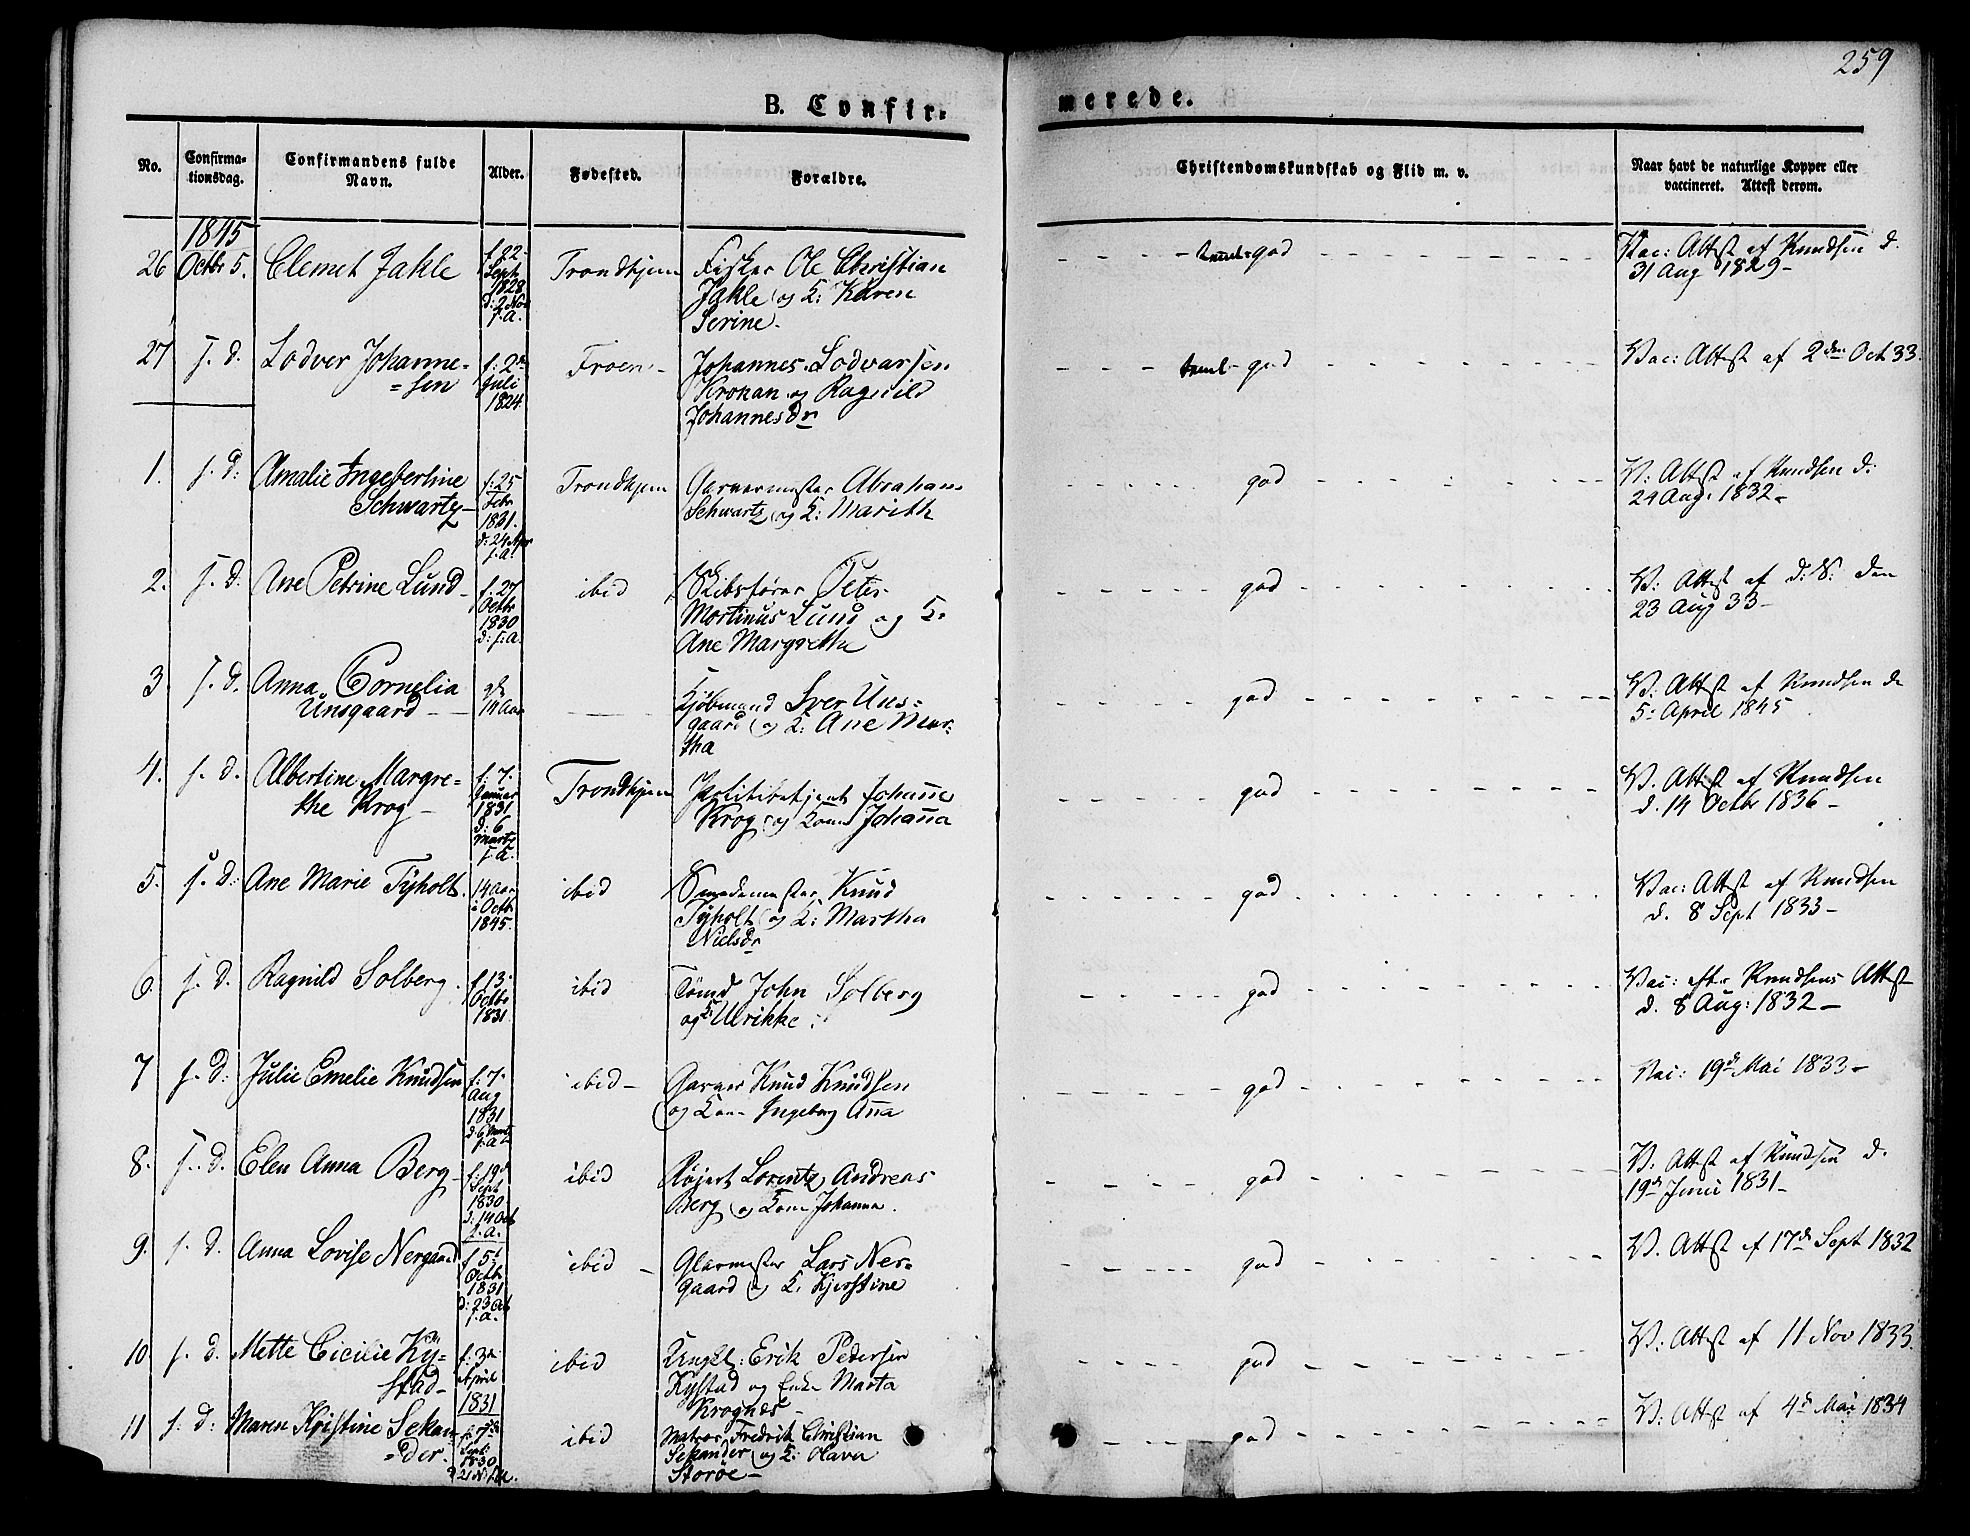 259
B. Confir-
merede.
No.
Confirma-
tionsdag.
Confirmandens fulde
Navn.
Alder.
Fødested.
Forældre.
Christendomskundskab og Flid m. v.
Naar havt de naturlige Kopper eller
vaccineret. Attest derom.
1845
26 Octbr 5. Clemet Jakle
f. 22
Sept
1828
d: 2 Nov
s. a.
Trondhjem
Fisker Ole Christian
Jakle og K: Karen
Serine.
teml. god
Vac: Attest af Knudsen d.
31 Aug 1829-
27 s. d. Lodver Johanne-
=sen
f. 2d
Juli
1824
Froen-
Johannes Lodvarsen
Krokan og Ragnild
Johannesdr
teml- god
Vac: Attest af 2den Oct 33.
1. s. d. Amalie Ingebertine
Schwartz
f: 25
Febr
1831.
d: 24 Apr
s. a.
Trondhjem
Garvermester Abraham
Schwartz og K: Marith
god
V: Attest af Knudsen d:
24 Aug: 1832-
2. s. d. Ane Petrine Lund
f. 27
Octbr
1830
d: s. a.
ibid
Skibsfører Peter
Martinus Lund og K:
Ane Margretha
god
V: Attest af d: S: den
23 Aug 33-
3 s. d. Anna Cornelia
Unsgaard
14 Aar
Kjøbmand Iver Uns=
gaard og K: Ane Mar-
tha
god
V: Attest af Knudsen d:
5: April 1845
4. s. d. Albertine Margre=
the Krog-
f. 7.
Januar
1831
d: 6
Martz
s. a.
Trondhjem
Politibetjent Johannes
Krog og Kone Johanna
god
V. Attest af Knudsen
d. 14 Octbr 1836-
5. s. d: Ane Marie Tyholt.
14 Aar
i Octb
1845.
ibid
Smedemester Knud
Tyholt og K: Martha
Nielsdr
god
Vac: Attest af Knudsen
d. 8 Sept 1833-
6. s. d. Ragnild Solberg.
f. 13.
Octbr
1831
ibid
Tømd John Solberg
og K: Ulrikke:
god
Vac: efter Knudsens Attest
d. 8 Aug: 1832-
7 s. d: Julie Emelie Knudsen
f. 7.
Aug
1831
d. 6 Martz
s. a
ibid-
Garver Knud Knudsen
og Kone Ingeborg Anna
god
Vac: 19d Mai 1833-
8. s. d. Elen Anna Berg
f. 19d
Sept
1830
d: 14 Oct
s. a.
ibid
Røjert Lorentz Andreas
Berg og Kone Johanna.
god
V. Attest af Knudsen d.
19d Juni 1831-
9. s. d. Anna Lovise Nergaard
f 5t
Octb
1831
d: 23 Oct
s. a.
ibid
Glarmester Lars Ner=
gaard og K: Kjerstine
god
V. Attest af 17d Sept 1832
10 s. d. Mette Cicilie Ky=
stad-
f. 3d
April
1831
ibid
Ungkl: Erik Pedersen
Kystad og Enke Marta
Krognes-
god
V: Attest af 11 Nov 1833.
11 s. d: Maren Kristine Sekan-
=der.
1830
ibid
Matros Fredrik Christian
Sekander og K: Olava
Storøe-
god
V: Attest af 4d Mai 1834